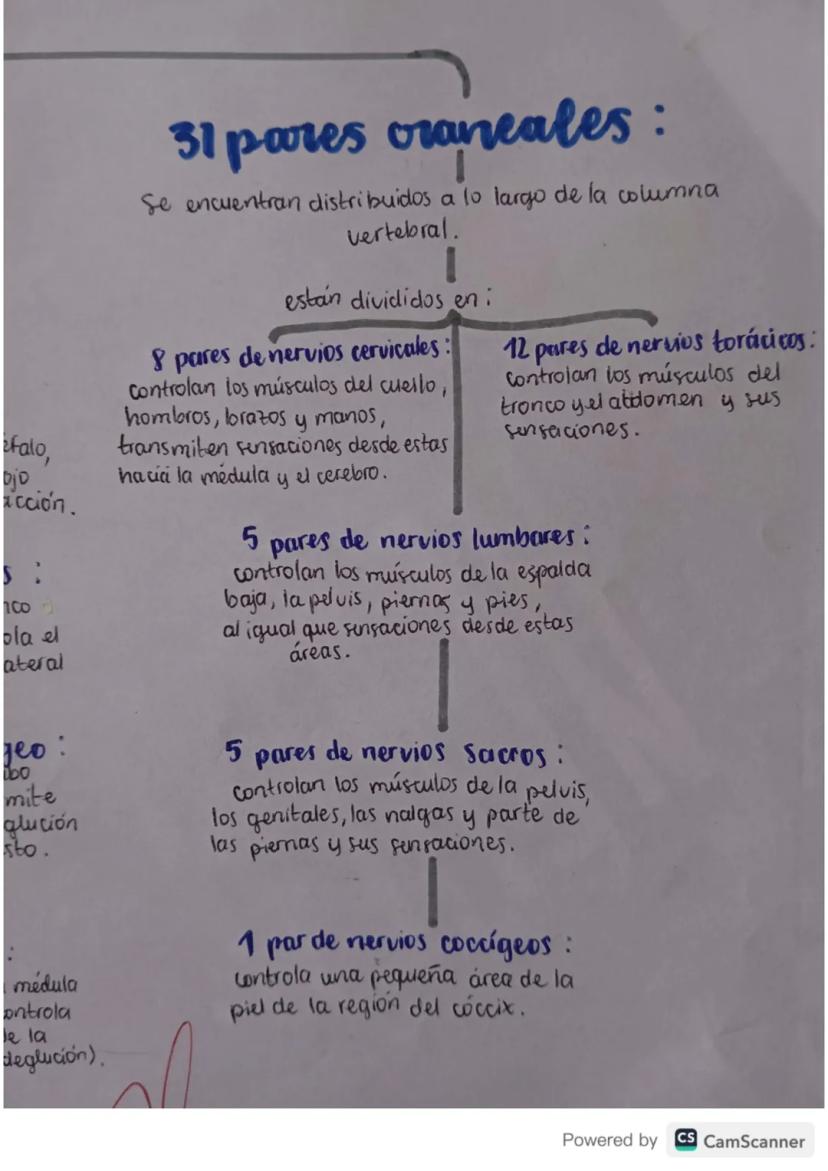 31 pares craneales :
Se encuentran distribuidos a lo largo de la columna
vertebral.
están divididos en :
8 pares de nervios cervicales :
controlan los músculos del cuello,
hombros, brazos y manos,
transmiten sensaciones desde estas
hacia la médula y el cerebro.
12 pares de nervios torácicos :
controlan los músculos del
tronco y el abdomen y sus
sensaciones.
5 pares de nervios lumbares :
controlan los músculos de la espalda
baja, la pelvis, piernas y pies,
al igual que sensaciones desde estas
áreas.
5 pares de nervios sacros :
controlan los músculos de la pelvis,
los genitales, las nalgas y parte de
las piernas y sus sensaciones.
1 par de nervios coccígeos :
controla una pequeña área de la
piel de la región del cóccix.
éfalo,
ojo
acción.
s :
nco
ola el
ateral
geo :
obo
mite
glución
sto.
:
médula
ontrola
de la
deglución).
Powered by CS CamScanner